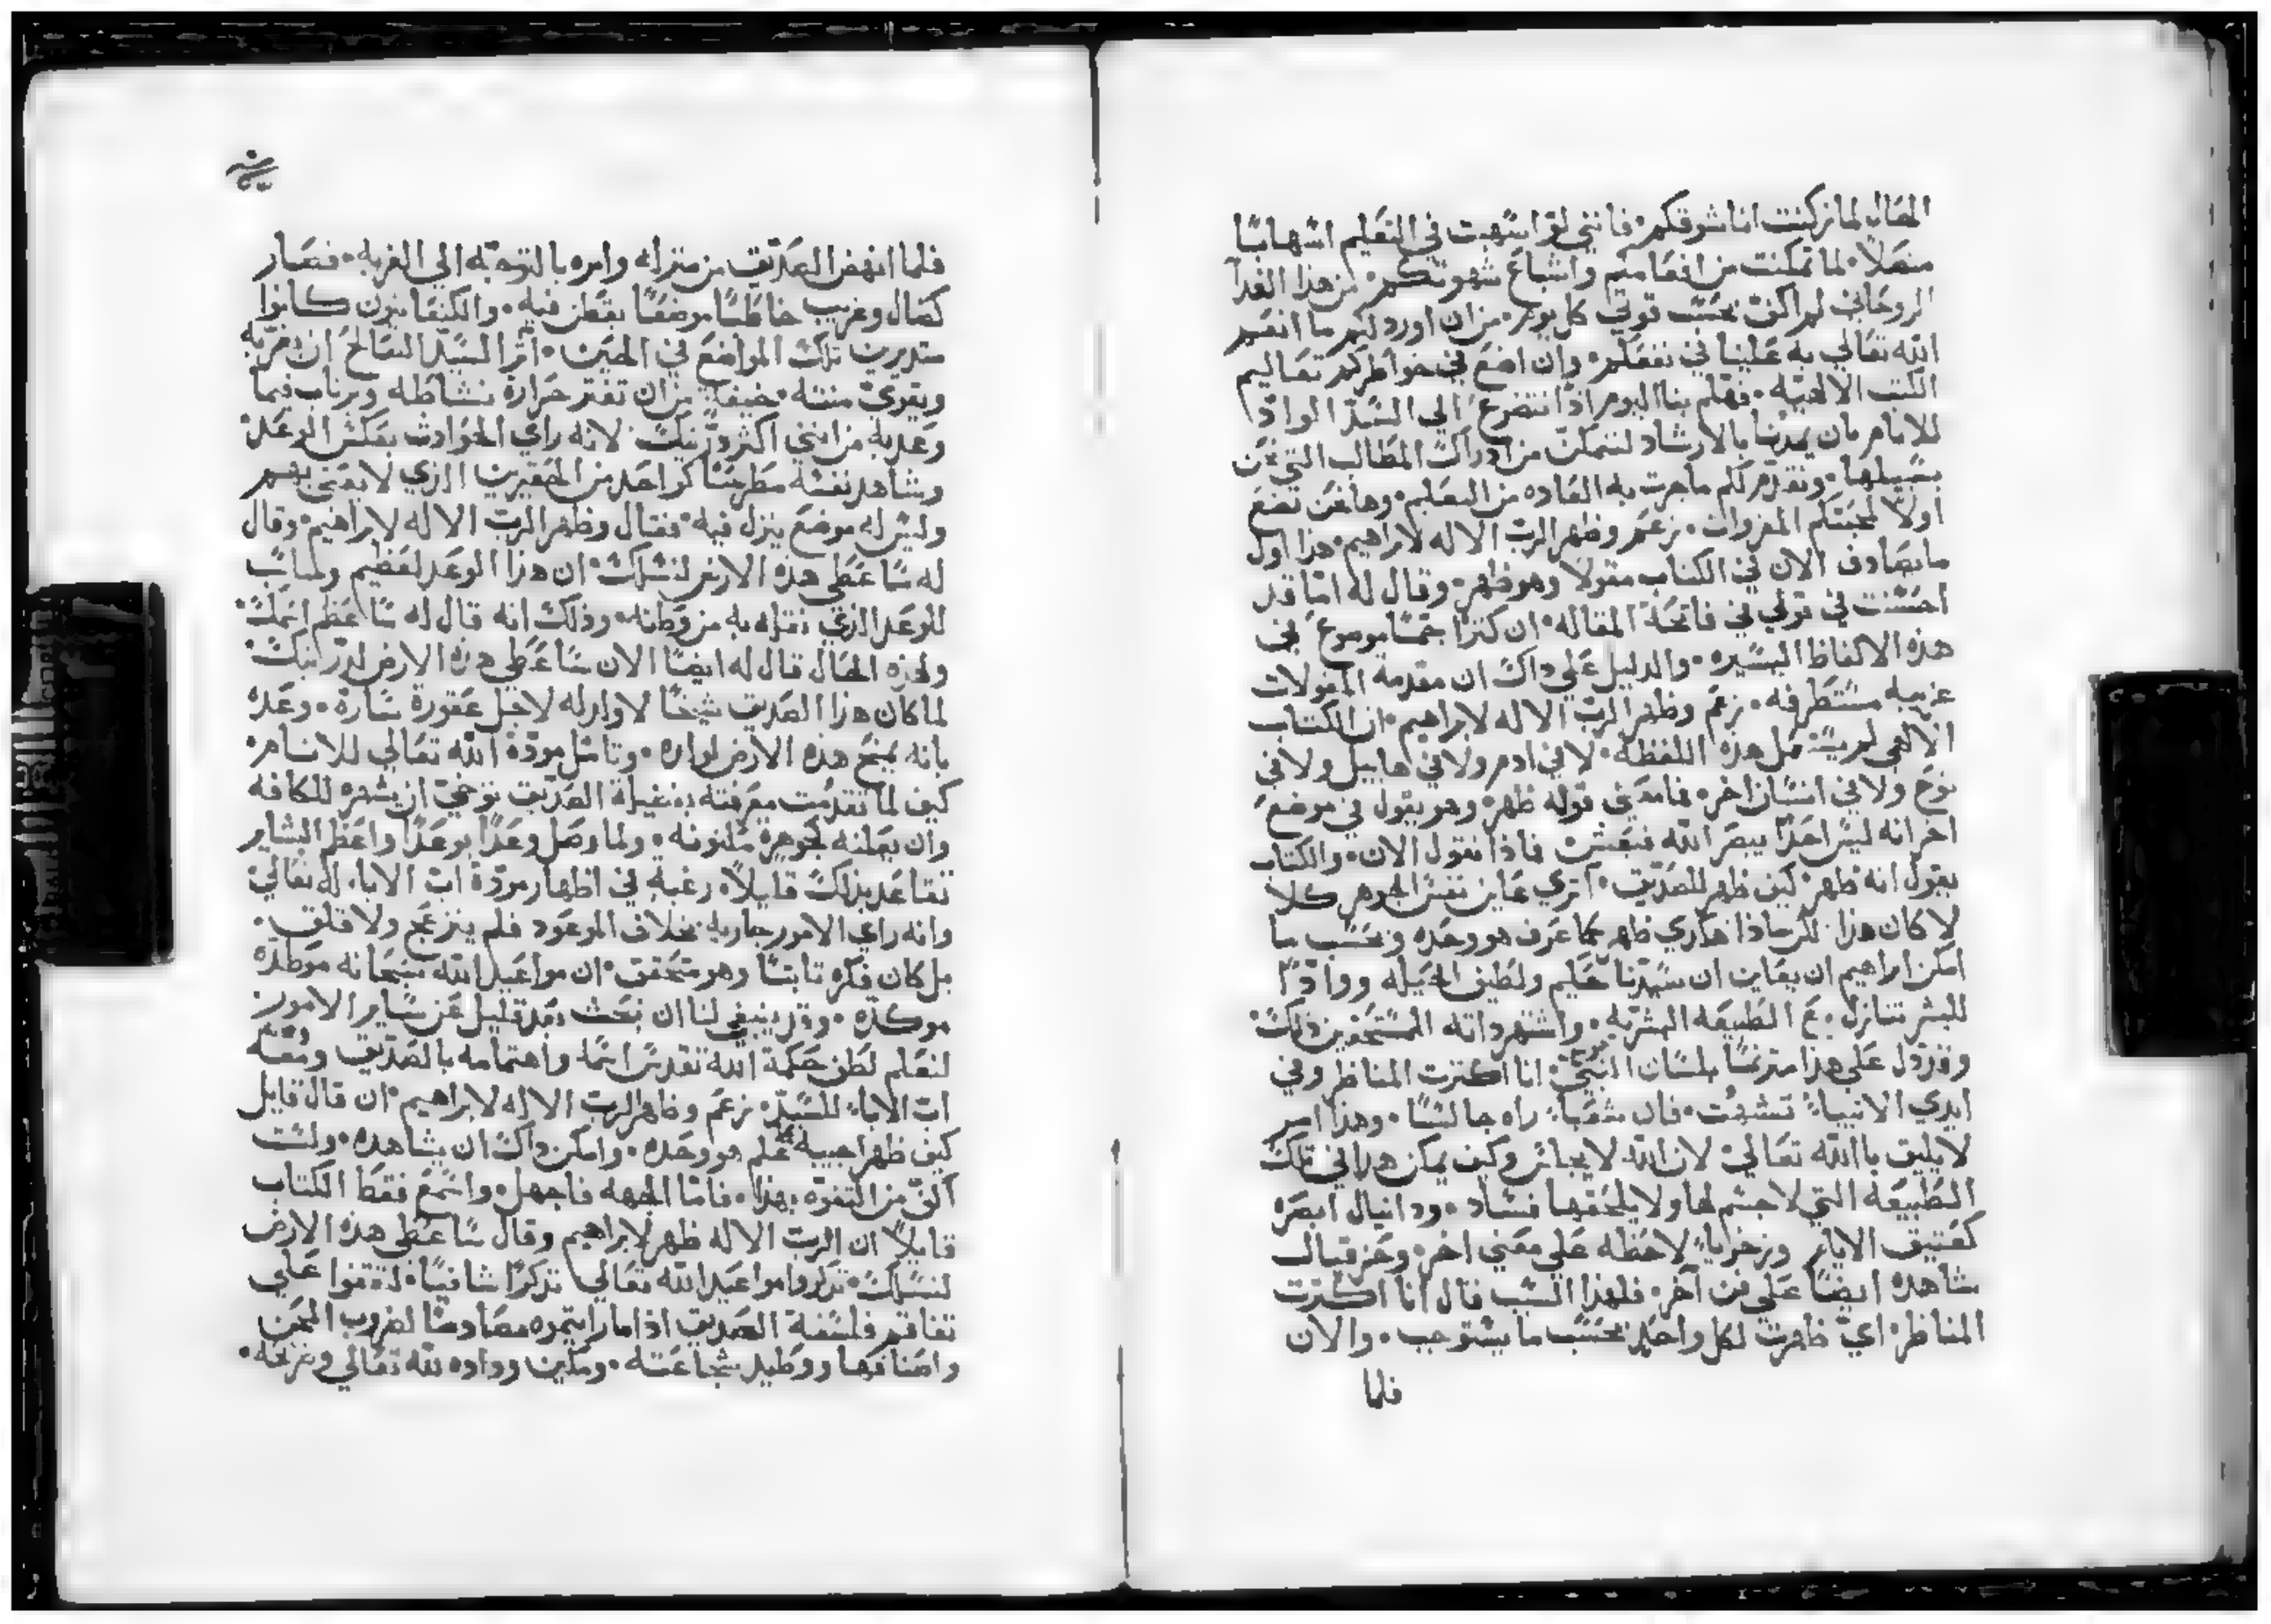 المقال لما زكنت انا شوقكم فانني لو اسهبت في التعليم اسهابًا
متصلاً لما تمكنت من افعامكم واشباع شهوتكم من هذا الغدآ
الروحاني لم اكفّ بحسب قوتي كل يوم من ان اورد لكم ما انعم
الله تعالي به علينا في نفعكم وان اضع في خواطركم تعاليم
الكتب الالهيّه فهلم بنا اليوم اذًا نتضرع الي السيّد الوادّ
للانام بان يمدّنا بالارشاد لنتمكن من ادراك المطالب التي نحن
بسبيلها ونقدّم لكم ما جرت به العاده من التعليم وها نحن نضع
اولاً لمحبّتكم المقروات زعم وظهر الرب الاله لابراهيم هذا اول
ما يصادف الان في الكتاب مقولاً وهو ظهر وقال له امّا قد
احسنت في قولي في فاتحة المقاله ان كنزًا جسمًا موضوع في
هذه الالفاظ اليسيره والدليل علي داك ان مقدمة المقولات
غريبه مستطرفه زعم وظهر الربّ الاله لابراهيم ان الكتاب
الالهي لم يستعمل هذه اللفظه لا في ادم ولا في هابيل ولا في
نوح ولا في انسان اخر فما معني قوله ظهر وهو يقول في موضع
اخر انه ليس احدًا يبصر الله فيعيش فاذا نقول الان والكتاب
يقول انه ظهر كيف ظهر للصدّيق اتري عاين نفس الجوهر كلا
لا كان هذا لكن ماذا هكذي ظهر كما عرف هو وحده وبحسب ما
امكن ابراهيم ان يعاين ان سيّدنا حليم ولطيف الحيله ووادّا
للبشر تنازل مع الطبيعه البشريّه واشهر داته المستحقين ذلك
وقد دل علي هذا مترنمًا بلسان النبيّ انا اكترت المناظر وفي
ايدي الانبياء تشبّهت فان شعيا راه جالسًا وهذا امر
لا يليق باالله تعالي لان الله لا يجالس وكيف يمكن هذا في تلك
الطبيعه التي لا جسم لها ولا يلحقها فساد ودانيال ابصره
كعتيق الايام وزخريا لاحظه علي معني اخر وحزقيال
شاهده ايضًا علي فن آخر فلهذا السبب قال انا اكثرت
المناظر ايّ ظهرت لكل واحدٍ بحسب ما يستوجب والان
فلما
فلما انهض الصدّيق من منزله وامره بالتوجّه الي الغربه فصار
كضال وغريب خاطبًا موضعًا يقطن فيه والكنعانيون كانوا
متديرين تلك المواضع في الحين اثر السيّد الصالح ان يعزّيه
ويقوّي منته خيفةً من ان تفتر حرارة نشاطه ويرتاب فيما
وعد به من انني اكثر ذرّيتك لانه راي الحوادث بعكس الوعد
وشاهد نفسه مطرحًا كواحد من الحقيرين الذي لا يعتني بهم
وليس له موضع ينزل فيه فقال وظهر الرب الاله لابراهيم وقال
له ساعطي هذه الارض لنسلك ان هذا الوعد لعظيم ومناسب
للوعد الذي نقله به من وطانه وذلك انه قال له ساعظم اسمك
ولهذه الحال قال له ايضًا الان ساعطي هذه الارض لذرّيتك
لما كان هذا الصديق شيخًا لا ولد له لاجل عقورة سارة وعده
بانه يمنح هذه الارض لولده وتامّل مودّة الله تعالي للانام
كيف لما تقدّمت معرفته بفضيلة الصدّيق توخّي ان يشهره للكافه
وان يعلنه كجوهرة مكنونه ولما وصل وعدًا بوعدًا واعظم البشاير
تقاعد بذلك قليلاً رغبه في اظهار مودّة ابّ الابا له تعالي
وانه راي الامور جاريه بخلاف الموعود فلم ينزعج ولا قلق
بل كان فكره تابتًا وهو متحقق ان مواعيد الله سبحانه موطّده
موكّده وقد ينبغي لنا ان نبحث بعد قليل عن ساير الامور
لنعلم لطف حكمة الله تقدس اسمه واهتمامه بالصديق ومقة
ابّ الابا للسيّد زعم وظهر الرب الاله لابراهيم ان قال قايل
كيف ظهر اجيبه كما علم هو وحده وامكن داك ان يشاهده ولست
اكفّ من التفوّه بهذا فامّا الجهه فاجهل واسمع فقط الكتاب
قايلاً ان الربّ الاله ظهر لابراهيم وقال ساعطي هذه الارض
لنسلك تذكروا مواعيد الله تعالي تذكرًا شافيًا لتقفوا علي
تفاقم فلسفة الصديق اذا ما رايتموه مصادمًا لضروب المحن
واصنافها ووطيد شجاعته ومكين وداده لله تعالي ونزحه